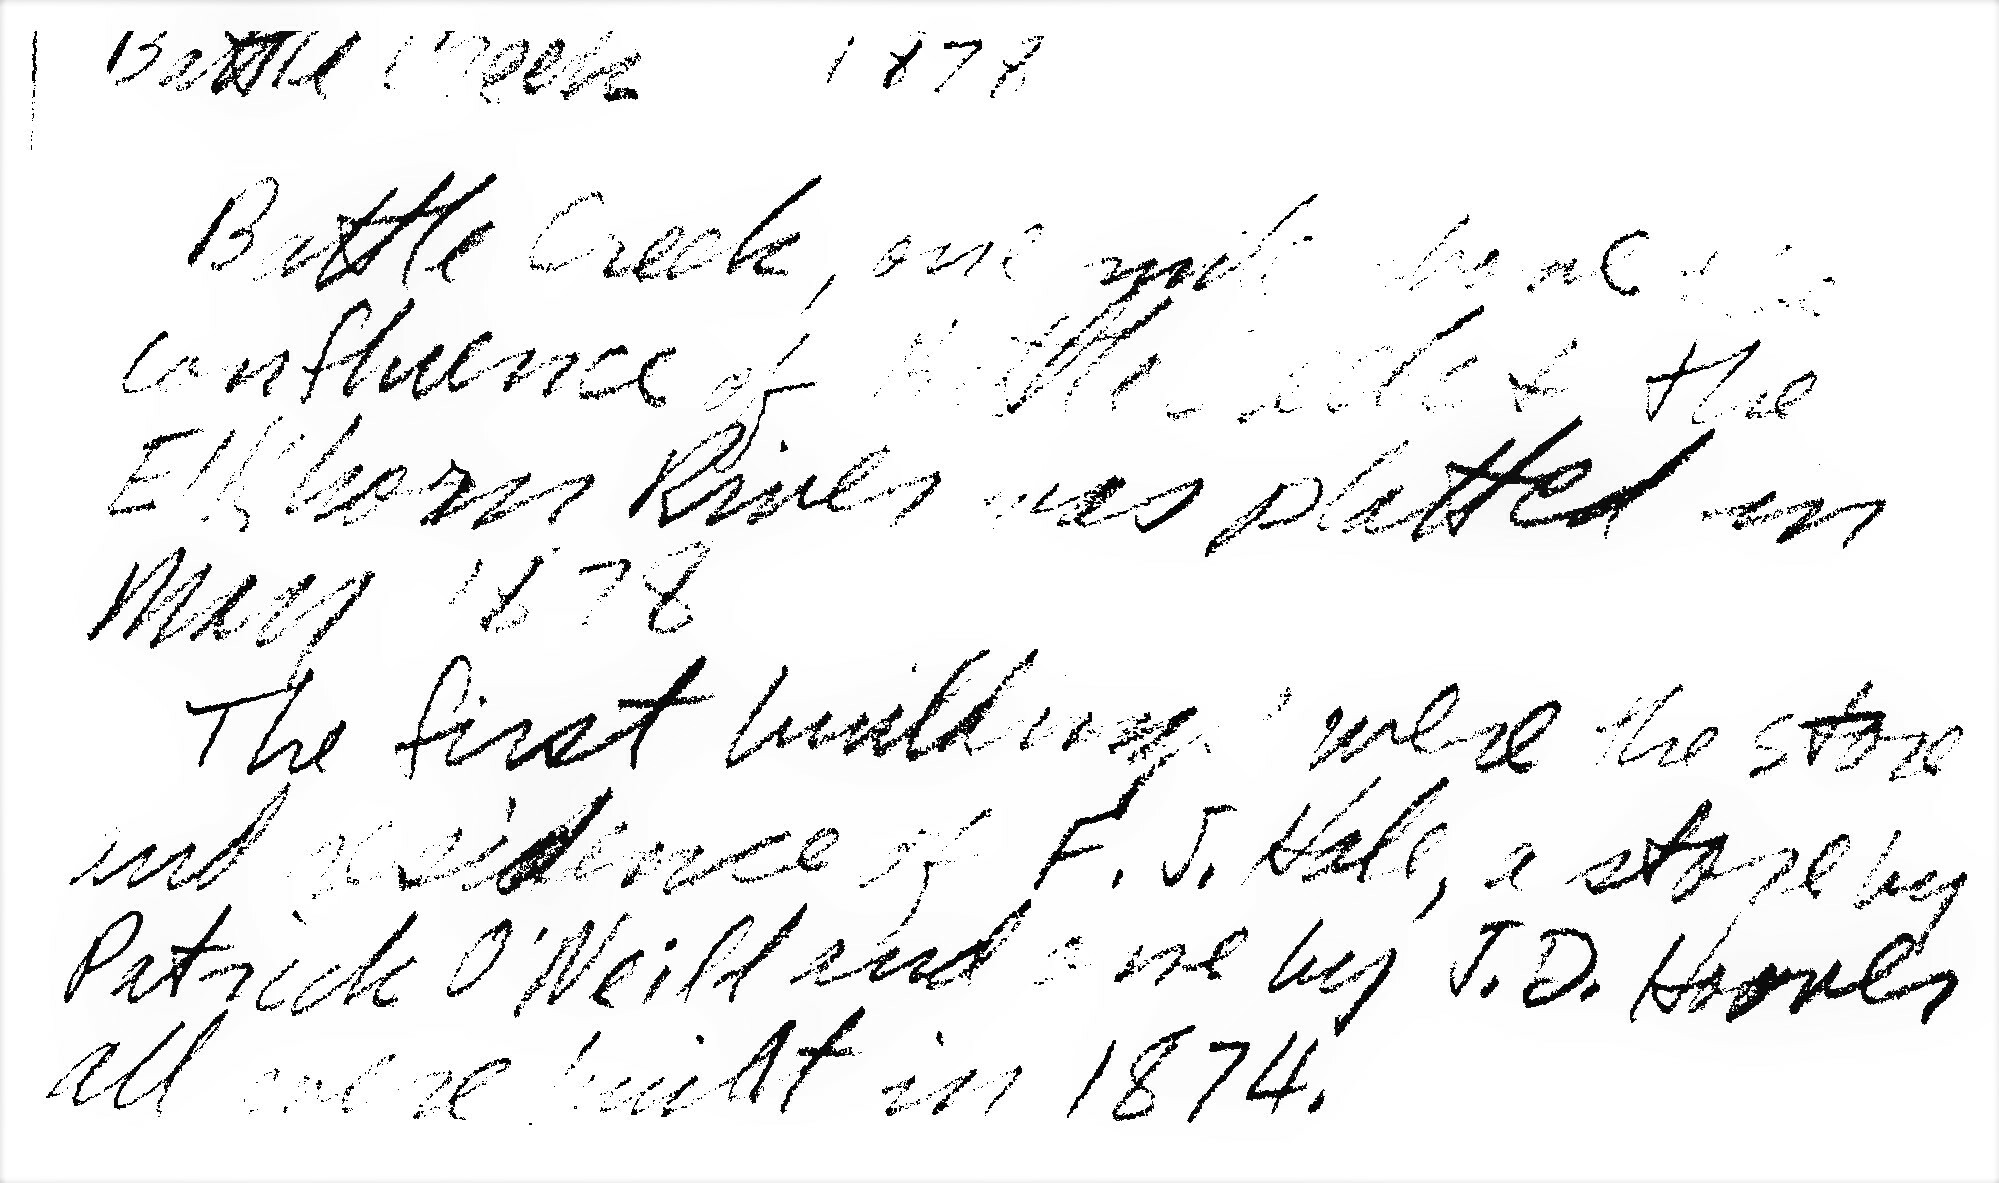 Battle Creek 1878
Battle Creek, one mile above the
confluence of Battle Creek & the
Elkhorn River was platted in
May 1878
The first buildings were the store
and residence of F. J. Hale, a store by
Patrick O'Neill and one by J. D. Hoover
all were built in 1874.